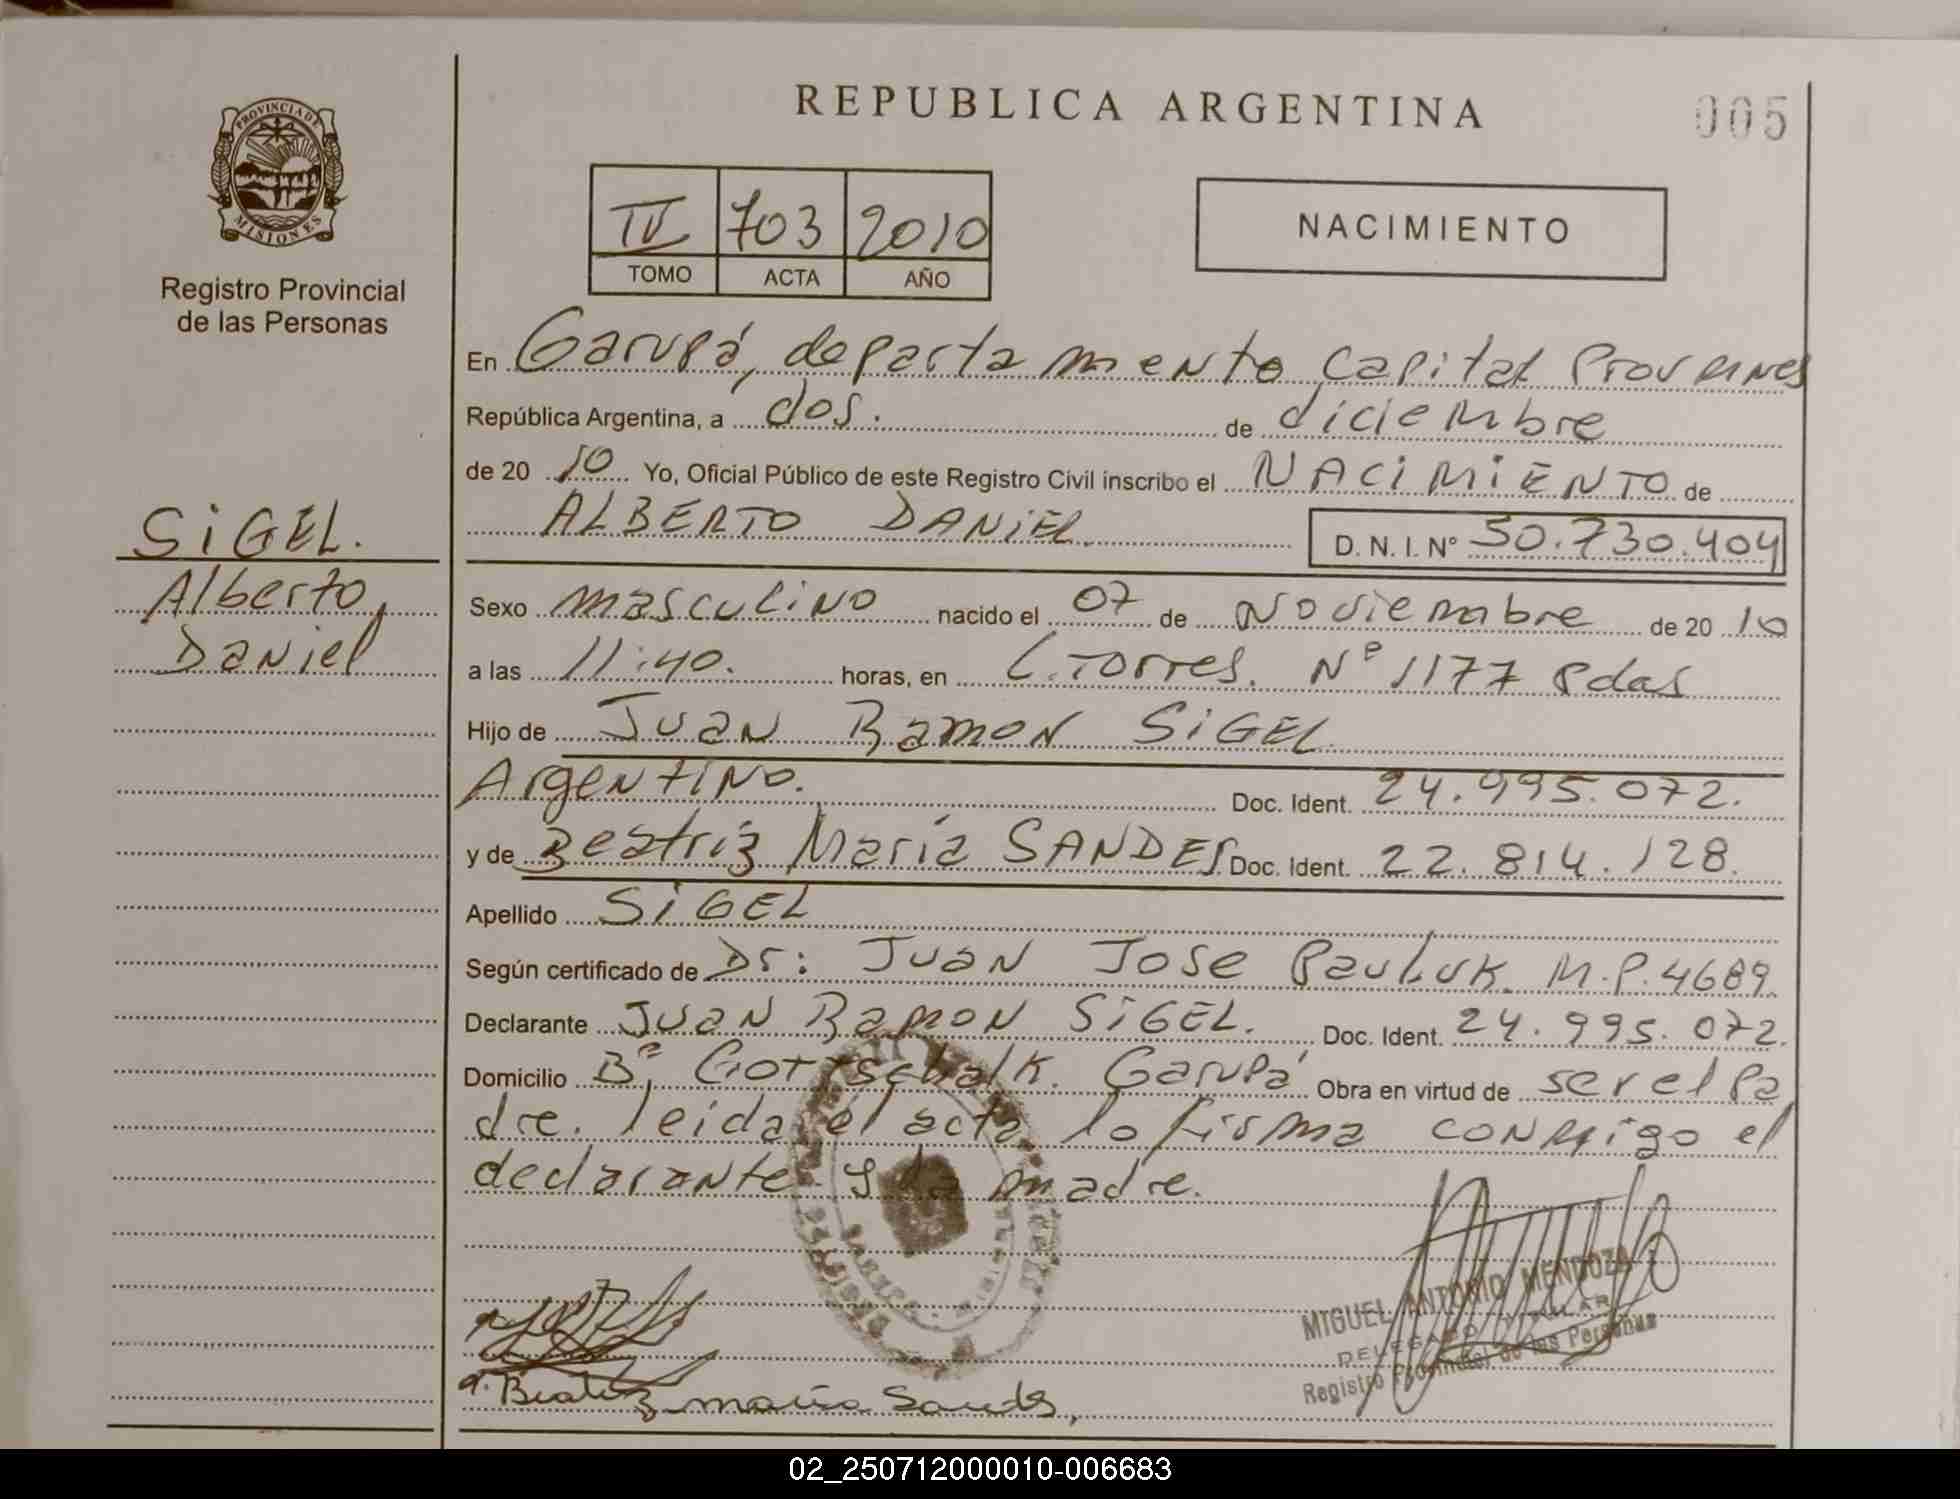 REPUBLICA ARGENTINA
005
PROVINCIA DE
MISIONES
Registro Provincial
de las Personas
IV 703 2010
TOMO ACTA AÑO
NACIMIENTO
En Garupá, departamento Capital
República Argentina, a dos. de diciembre
de 20 10 Yo, Oficial Público de este Registro Civil inscribo el NACIMIENTO de
ALBERTO DANIEL. D. N. I. Nº 50.730.404
SIGEL.
Alberto,
Daniel
Sexo masculino nacido el 07 de Noviembre de 20 10
a las 11:40. horas, en C. Torres. Nº 1177 Pdas
Hijo de Juan Ramon SIGEL
Argentino. Doc. Ident. 24.995.072.
y de Beatriz María SANDES Doc. Ident. 22.814.128.
Apellido SIGEL
Según certificado de Dr: Juan Jose Pauluk M.P. 4689.
Declarante Juan Ramon SIGEL. Doc. Ident. 24.995.072.
Domicilio Bº Gottschalk. Garupá Obra en virtud de ser el pa
dre. leida el acta lo firma conmigo el
declarante y la madre.
MIGUEL ANTONIO MENDOZA
DELEGADO TITULAR
Registro Provincial de las Personas
Beatriz maria Sandes,
02_250712000010-006683